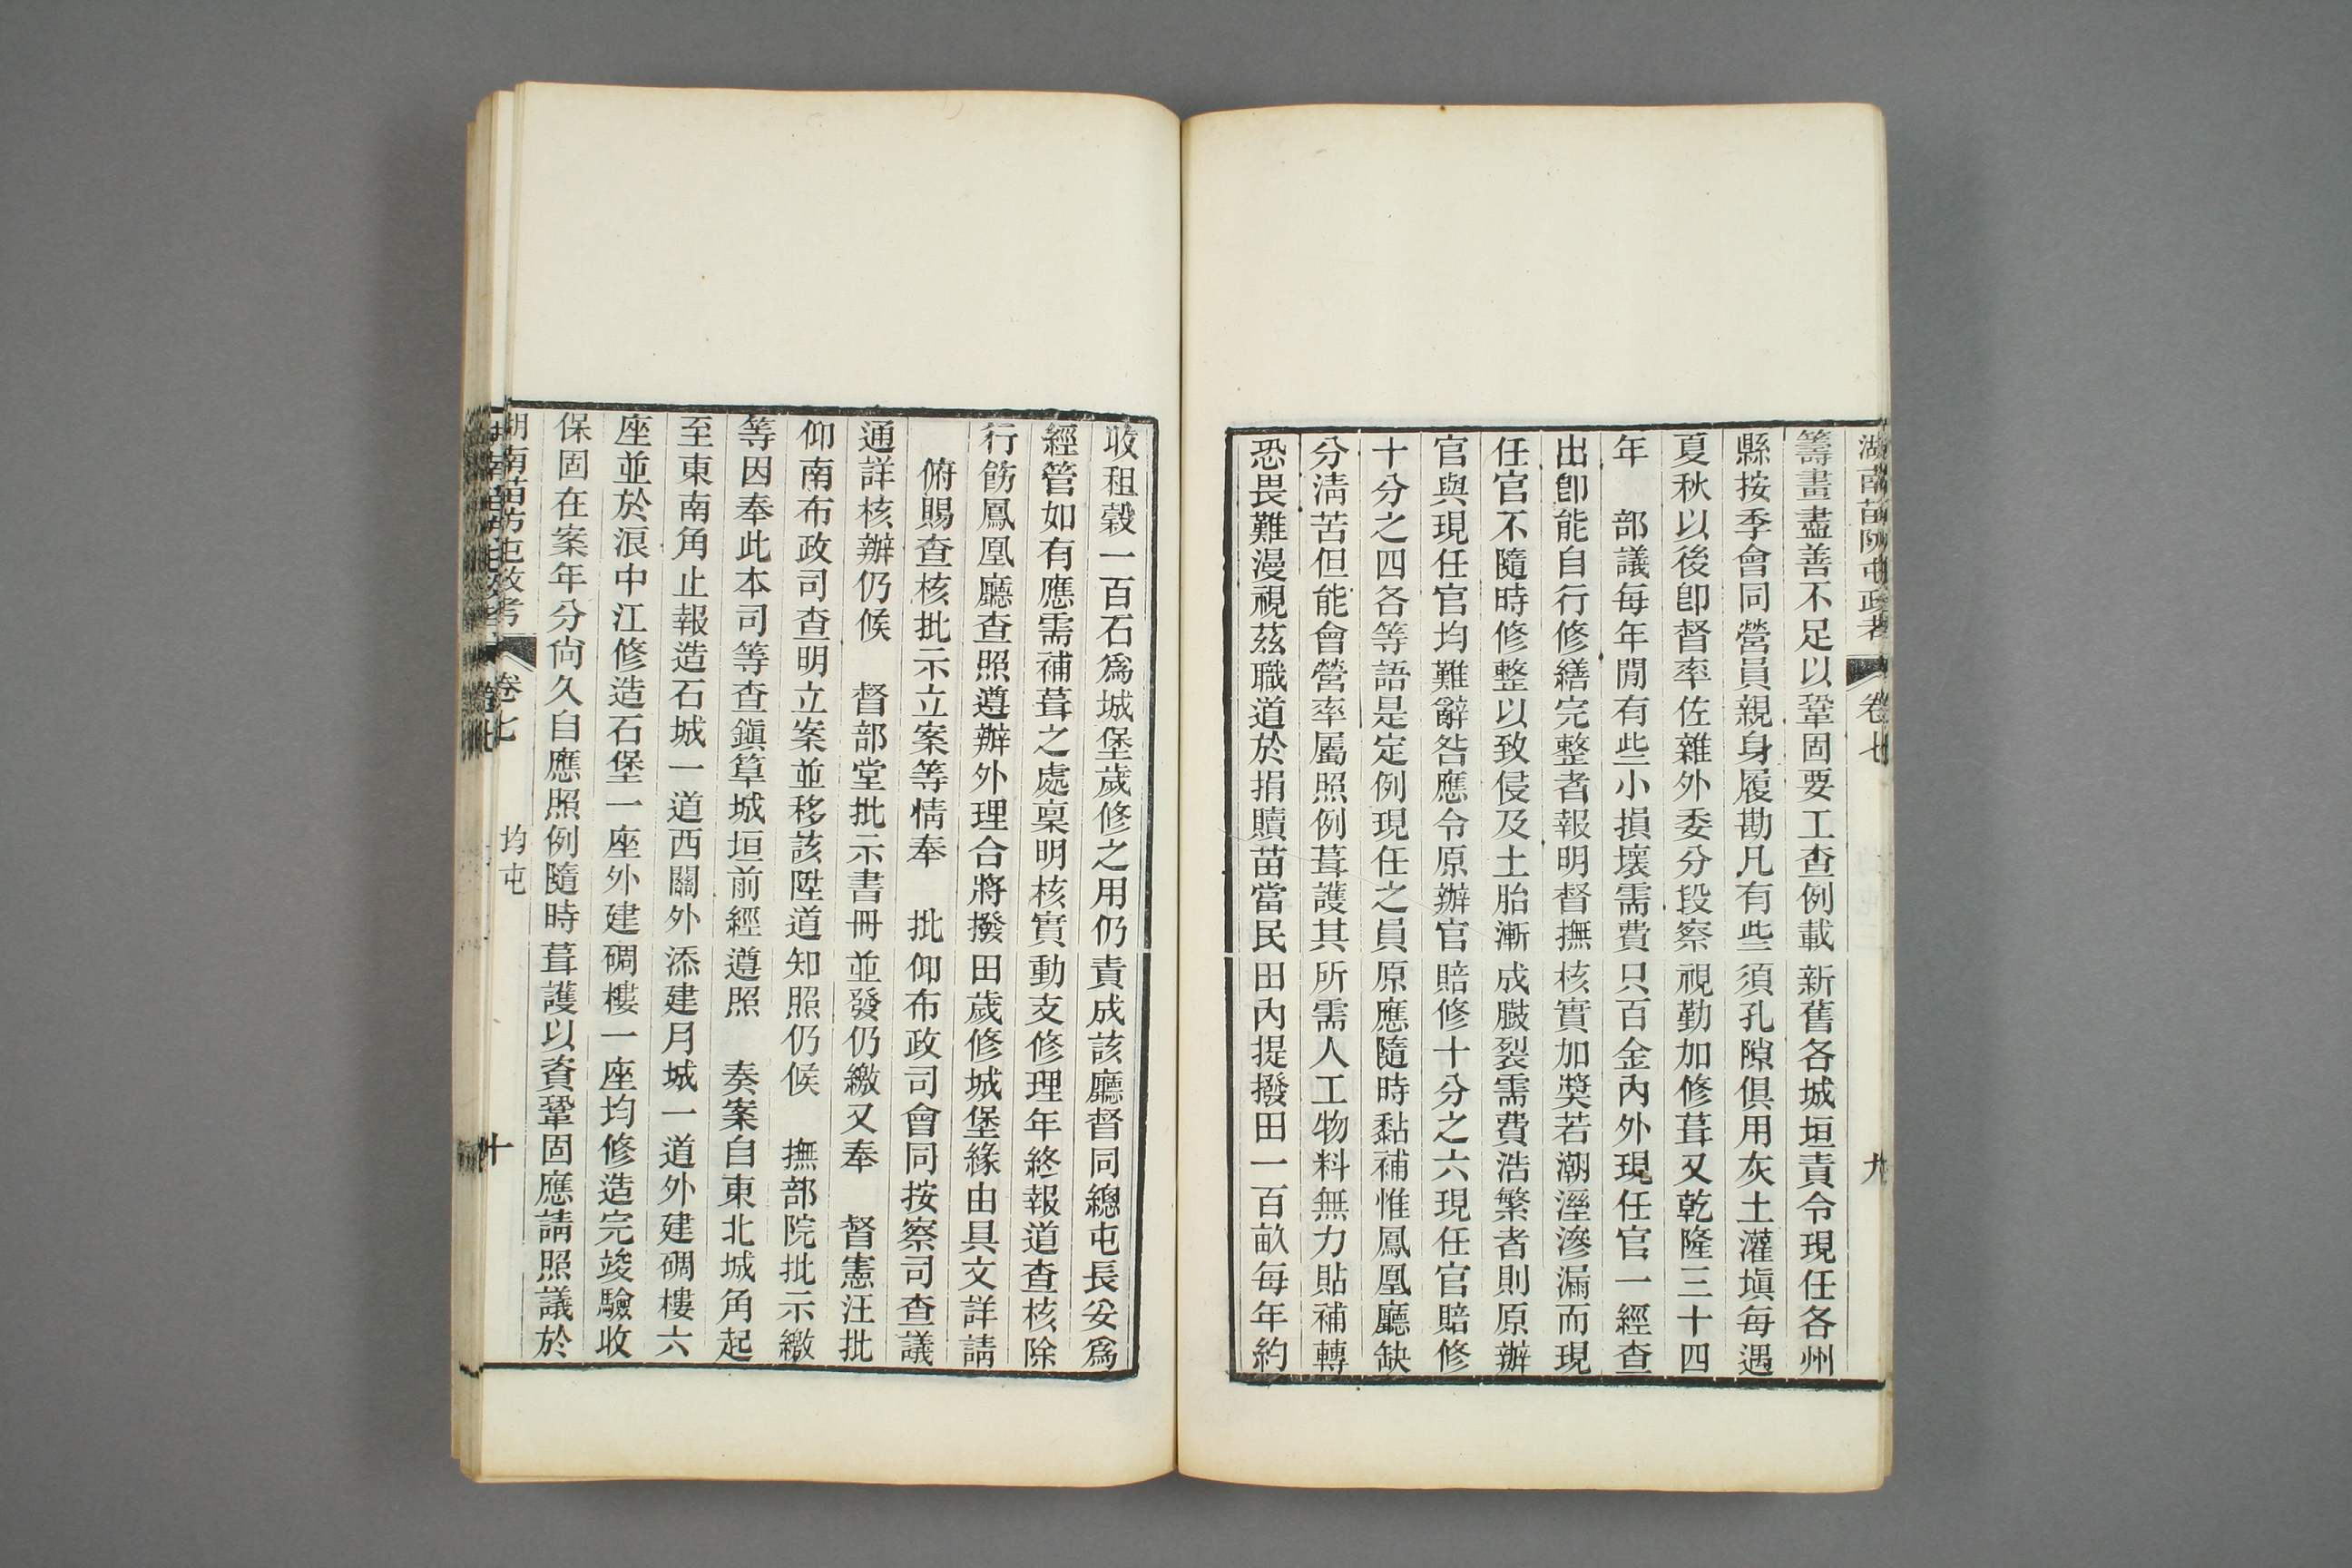 湖南苗防屯政考 卷七 九
籌畫盡善不足以鞏固要工查例載新舊各城垣責令現任各州
縣按季會同營員親身履勘凡有些須孔隙俱用灰土灌塡每遇
夏秋以後卽督率佐雜外委分段察視勤加修葺又乾隆三十四
年 部議每年閒有些小損壞需費只百金內外現任官一經查
出卽能自行修繕完整者報明督撫核實加獎若潮溼滲漏而現
任官不隨時修整以致侵及土胎漸成臌裂需費浩繁者則原辦
官與現任官均難辭咎應令原辦官賠修十分之六現任官賠修
十分之四各等語是定例現任之員原應隨時黏補惟鳳凰廳缺
分淸苦但能會營率屬照例葺護其所需人工物料無力貼補轉
恐畏難漫視茲職道於捐贖苗當民田內提撥田一百畝每年約
收租穀一百石爲城堡歲修之用仍責成該廳督同總屯長妥爲
經管如有應需補葺之處稟明核實動支修理年終報道查核除
行飭鳳凰廳查照遵辦外理合將撥田歲修城堡緣由具文詳請
俯賜查核批示立案等情奉 批仰布政司會同按察司查議
通詳核辦仍候 督部堂批示書冊並發仍繳又奉 督憲汪批
仰南布政司查明立案並移該陞道知照仍候 撫部院批示繳
等因奉此本司等查鎭筸城垣前經遵照 奏案自東北城角起
至東南角止報造石城一道西關外添建月城一道外建碉樓六
座並於浪中江修造石堡一座外建碉樓一座均修造完竣驗收
保固在案年分尙久自應照例隨時葺護以資鞏固應請照議於
湖南苗防屯政考 卷七 均屯 十